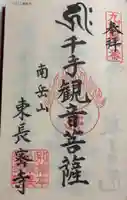 奉拝
千手観音菩薩
南岳山
東長寺